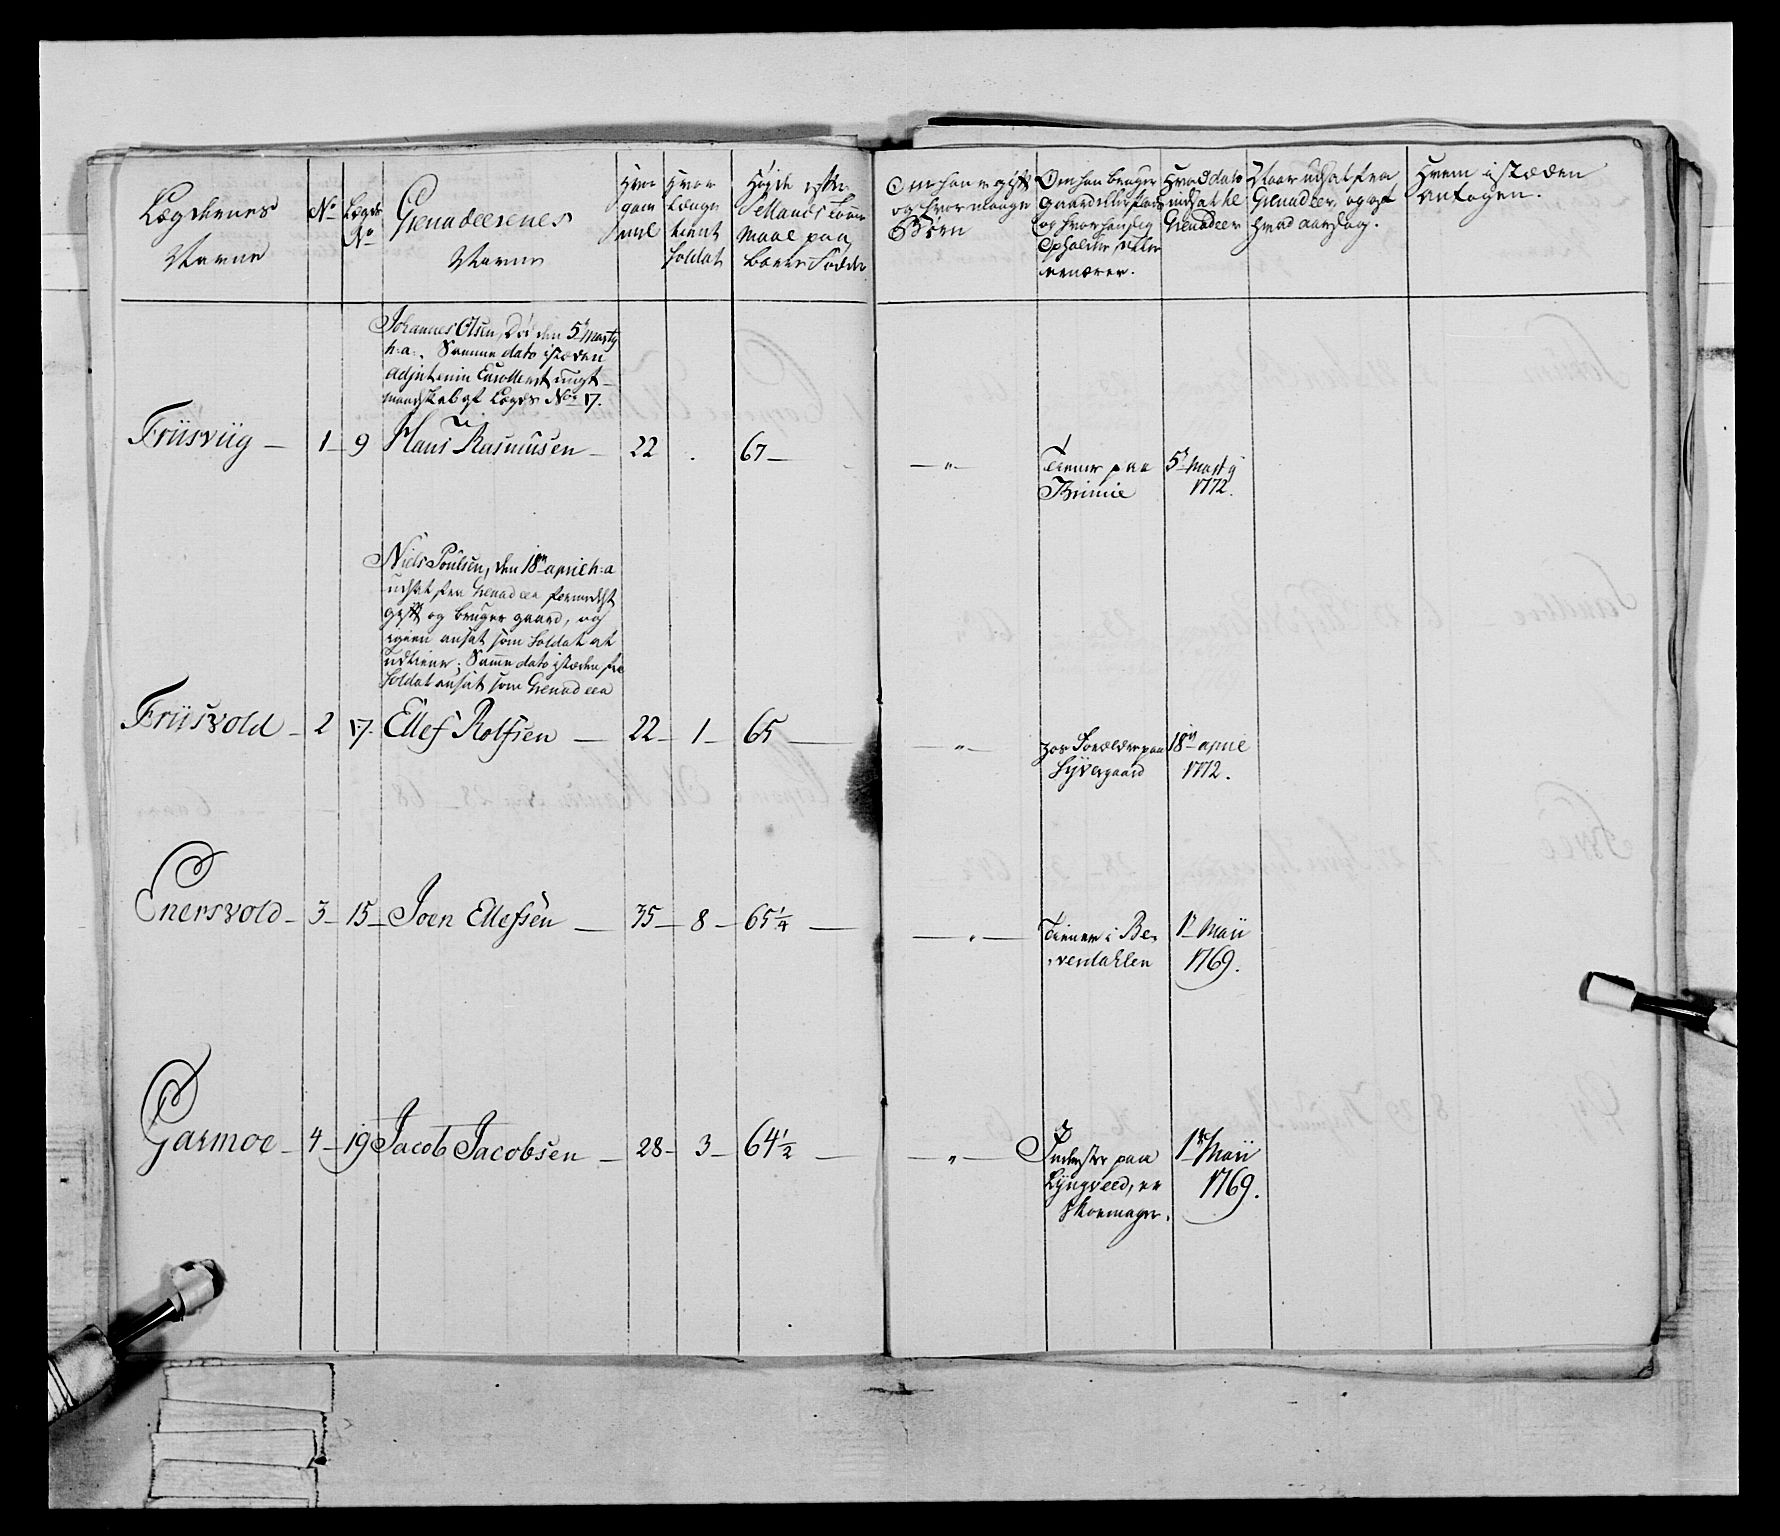 Lægdernes
Navne
No
Lægds
No
Grenadeerenes
Navne
Hvor
gam
mel
Hvor
længe
tient
Soldat
Høyde efter
Sellands Tomme
Maal paa
barre Fødder
Om han er gift
og hvor mange
Børn
Om han bruger
gaard eller plads
og hvor han sig
opholder, eller
ernærer.
Hvad dato
indsat til
Grenadeer
Naar udsat fra
Grenadeer, og af
hvad aarsag.
Hvem i stæden
antagen.
Johannes Olsen, Død den 5te Marty
h: a:, Samme dato i stæden
adjut
mandskab af Lægds No 17.
Friisviig - 1 - 9 Hans Rasmusen - 22 . 67 - - " - Tiener paa 5te Marty
Brimie 1772.
Niels Poulsen, den 18de april h: a
udsat fra Grenadeer formedelst
gift og bruger gaard, og
igien ansat som Soldat at
udtiene; Samme dato i stæden fra
Soldat ansat som Grenadeer
Friisvold - 2 17. Ellef Rolfsen - 22 - 1 - 65 - - " - hos Forældre paa 18de april
Syvergaard 1772.
Enersvold - 3 - 15 - Joen Ellefsen - 35 - 8 - 65 1/4 - - " - Tiener i Be- 1te Maii
vendahlen 1769.
Garmoe - 4 - 19 Jacob Jacobsen - 28 - 3 - 64 1/2 - - " - Inderster paa 1te Maii
Lyngveed, er 1769.
Skoemager.